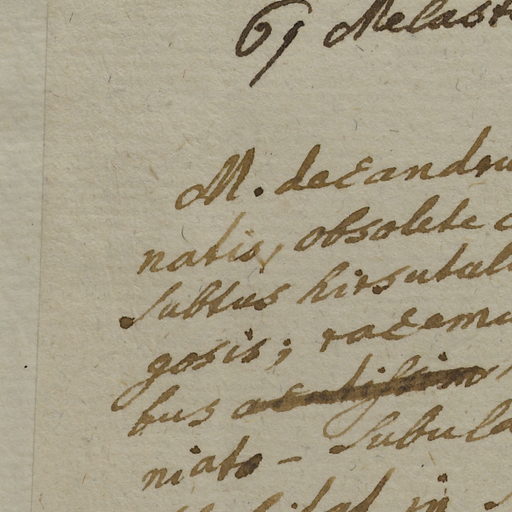 61 Melast
M. decandru
natis, obsolete c
subtus hirsutul
gosis; racemu
bus acutissim
niato - subula